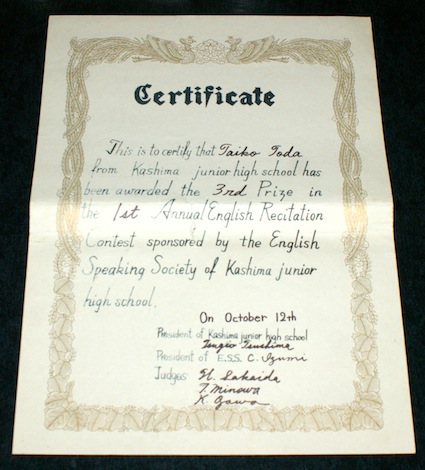 Certificate
This is to certify that Taiko Toda
from Kashima junior high school has
been awarded the 3rd Prize in
the 1st Annual English Recitation
Contest sponsored by the English
Speaking Society of Kashima junior
high school.
On October 12th
President of Kashima junior high school
Tsushima
President of E.S.S. C. Izumi
Judges H. Sakaida
T. Minowa
K. Gawa